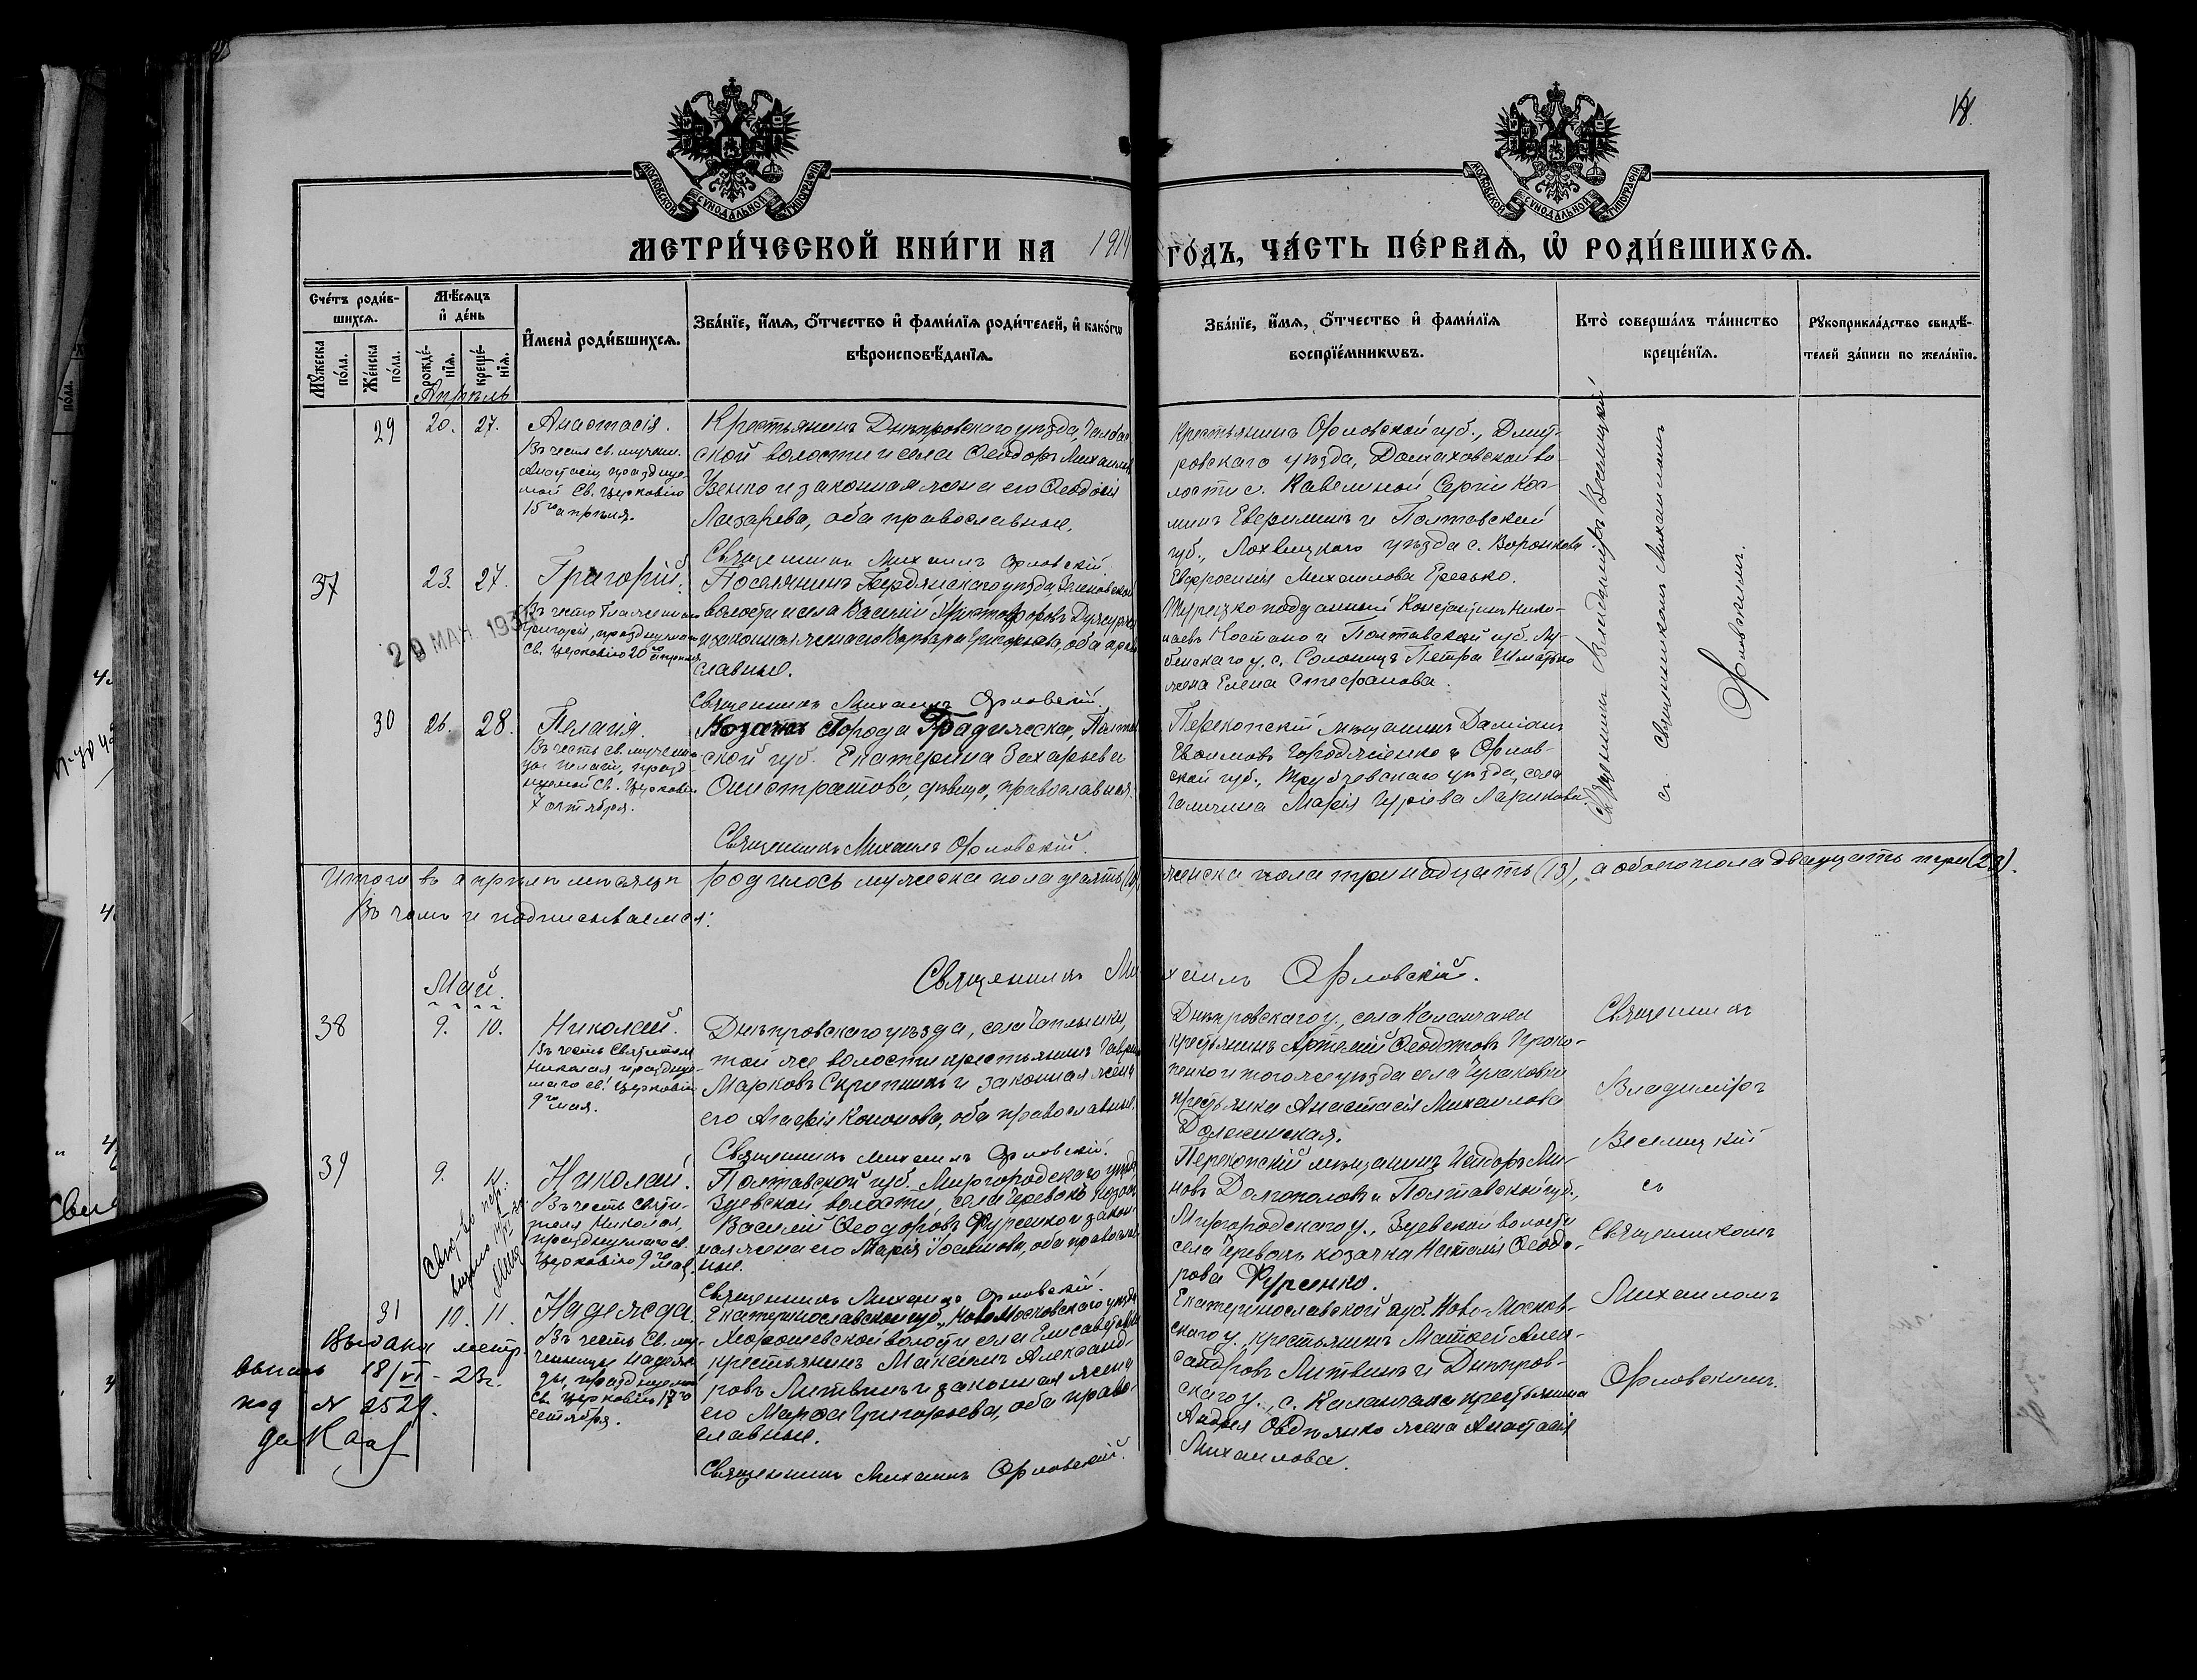 18.
МОСКОВСКОЙ СѴНОДАЛЬНОЙ ТИПОГРАФІИ
МОСКОВСКОЙ СѴНОДАЛЬНОЙ ТИПОГРАФІИ
МЕТРИ́ЧЕСКОЙ КНИ́ГИ НА 1914 ГО́ДЪ, ЧА́СТЬ ПЕ́РВАѦ, Ѡ҆ РОДИ́ВШИХСѦ.
Сче́тъ роди́в-
шихсѧ.
Мꙋ́жеска по́ла.
Же́нска по́ла.
Мѣ́сѧцъ
и҆ де́нь
рожде́-
нїѧ.
креще́-
нїѧ.
И҆мена̀ роди́вшихсѧ.
Зва́нїе, и҆́мѧ, ѻ҆́тчество и҆ фами́лїѧ роди́телей, и҆ како́гѡ
вѣроисповѣ́данїѧ.
Зва́нїе, и҆́мѧ, ѻ҆́тчество и҆ фами́лїѧ
воспрїе́мникѡвъ.
Кто̀ соверша́лъ та́инство
креще́нїѧ.
Рꙋкоприкла́дство свидѣ́-
телей за́писи по жела́нїю.
Апрѣль
29 20. 27. Анастасія.
Въ честь св. мучен.
Анастасіи, празднуе-
мой Св. Церковію
15го апрѣля.
Крестьянинъ Днѣпровскаго уѣзда, Чалбас
ской волости и села Ѳеодоръ Михаиловъ
Узенко и законная жена его Ѳеодосія
Лазарева, оба православные.
Священникъ Михаилъ Орловскій.
Крестьянинъ Орловской губ., Дмит-
ровскаго уѣзда, Домаховской во-
лости с. Кавелиной Сергій Коз-
минъ Еверилинъ и Полтавской
губ., Лохвицкаго уѣзда с. Воронкова
Евфросинія Михаилова Ересько.
Священникъ Владиміръ Веселицкій
съ Священникомъ Михаиломъ
Орловскимъ.
37 23. 27. Григорій.
Григорія, празднуемаго
Св. Церковію 20го апрѣля
29 МАЯ 193
Поселянинъ Бердянскаго уѣзда,
волости и села Василій Христофоровъ
и законная жена его Варвара Григорьева, оба право
славные.
Священникъ Михаилъ Орловскій.
Турецко подданный Константинъ Нико-
лаевъ Костано и Полтавской губ. Лу-
бенскаго у. с. Солоница Петра Шматько
жена Елена Стефанова.
30 26. 28. Пелагія.
Въ честь св. мучени-
цы Пелагіи, празд-
нуемой Св. Церковію
7 октября.
Козачка города Градижска, Полтав
ской губ. Екатерина Захарьева
Онистратова, дѣвица, православная.
Священникъ Михаилъ Орловскій.
Перекопскій мѣщанинъ Даміанъ
Евфимовъ Городниченко и Орлов-
ской губ., Трубчевскаго уѣзда, села
Галичина Марія Гуріева Ларикова.
Итого въ апрѣлѣ мѣсяцѣ родилось мужеска пола десять (10) женска пола тринадцать (13), а обоего пола двадцать три (23).
Въ чемъ и подписываемся:
Священникъ Михаилъ Орловскій.
Май.
38 9. 10. Николай.
Въ честь Святителя
Николая, празднуе-
маго св. Церковію
9го мая.
Днѣпровскаго уѣзда, села Чаплинки,
той же волости крестьянинъ Гавріилъ
Марковъ Скрипникъ и законная жена
его Агафія Кононова, оба православные.
Священникъ Михаилъ Орловскій.
Днѣпровскаго у., села Каланчака
крестьянинъ Артемій Ѳеодотовъ Проко-
пенко и того же уѣзда села Чулаковки
крестьянка Анастасія Михаилова
Должинская.
Священникъ
Владиміръ
Веселицкій
съ
Священникомъ
Михаиломъ
Орловскимъ.
39 9. 11. Николай.
Въ честь Святи-
теля Николая,
празднуемаго св.
Церковію 9го мая.
Полтавской губ. Миргородскаго уѣзда,
Зуевской волости, села Черевокъ козакъ
Василій Ѳеодоровъ Фурсенко и закон-
ная жена его Марія Іосифова, оба православ-
ные.
Священникъ Михаилъ Орловскій.
Перекопскій мѣщанинъ Исидоръ Ми-
новъ Долгополовъ и Полтавской губ.,
Миргородскаго у., Зуевской волости
села Черевокъ козачка Наталія Ѳеодо-
рова Фурсенко.
31 10. 11. Надежда.
Въ честь Св. му-
ченицы Надеж-
ды, празднуемой
Св. Церковію 17го
сентября.
Выдана метр.
выпись 18/VI - 23г.
под № 2529.
Екатеринославской губ., Ново Московскаго уѣзда
Хорошевской волости, села Елисаветовки
крестьянинъ Максимъ Александ-
ровъ Литвинъ и законная жена
его Марѳа Григорьева, оба право-
славные.
Священникъ Михаилъ Орловскій.
Екатеринославской губ. Ново-Москов-
скаго у., крестьянинъ Матѳей Алек-
сандровъ Литвинъ и Днѣпров-
скаго у., с. Каланчака крестьянина
Андрея Овдѣенко жена Анастасія
Михаилова.